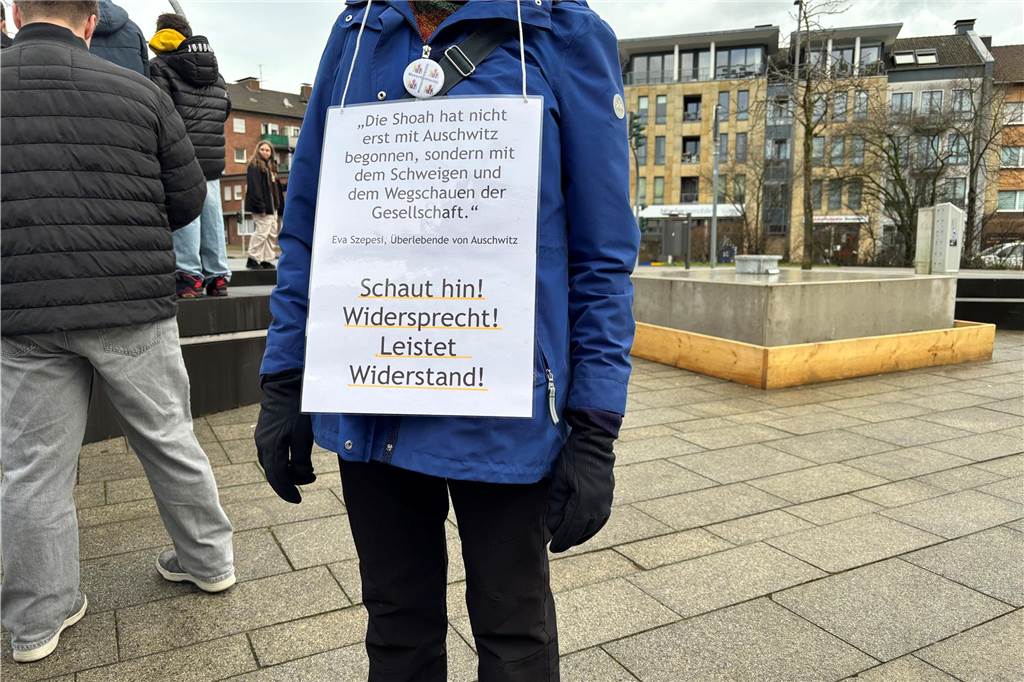 „Die Shoah hat nicht
erst mit Auschwitz
begonnen, sondern mit
dem Schweigen und
dem Wegschauen der
Gesellschaft.“
Eva Szepesi, Überlebende von Auschwitz
Schaut hin!
Widersprecht!
Leistet
Widerstand!